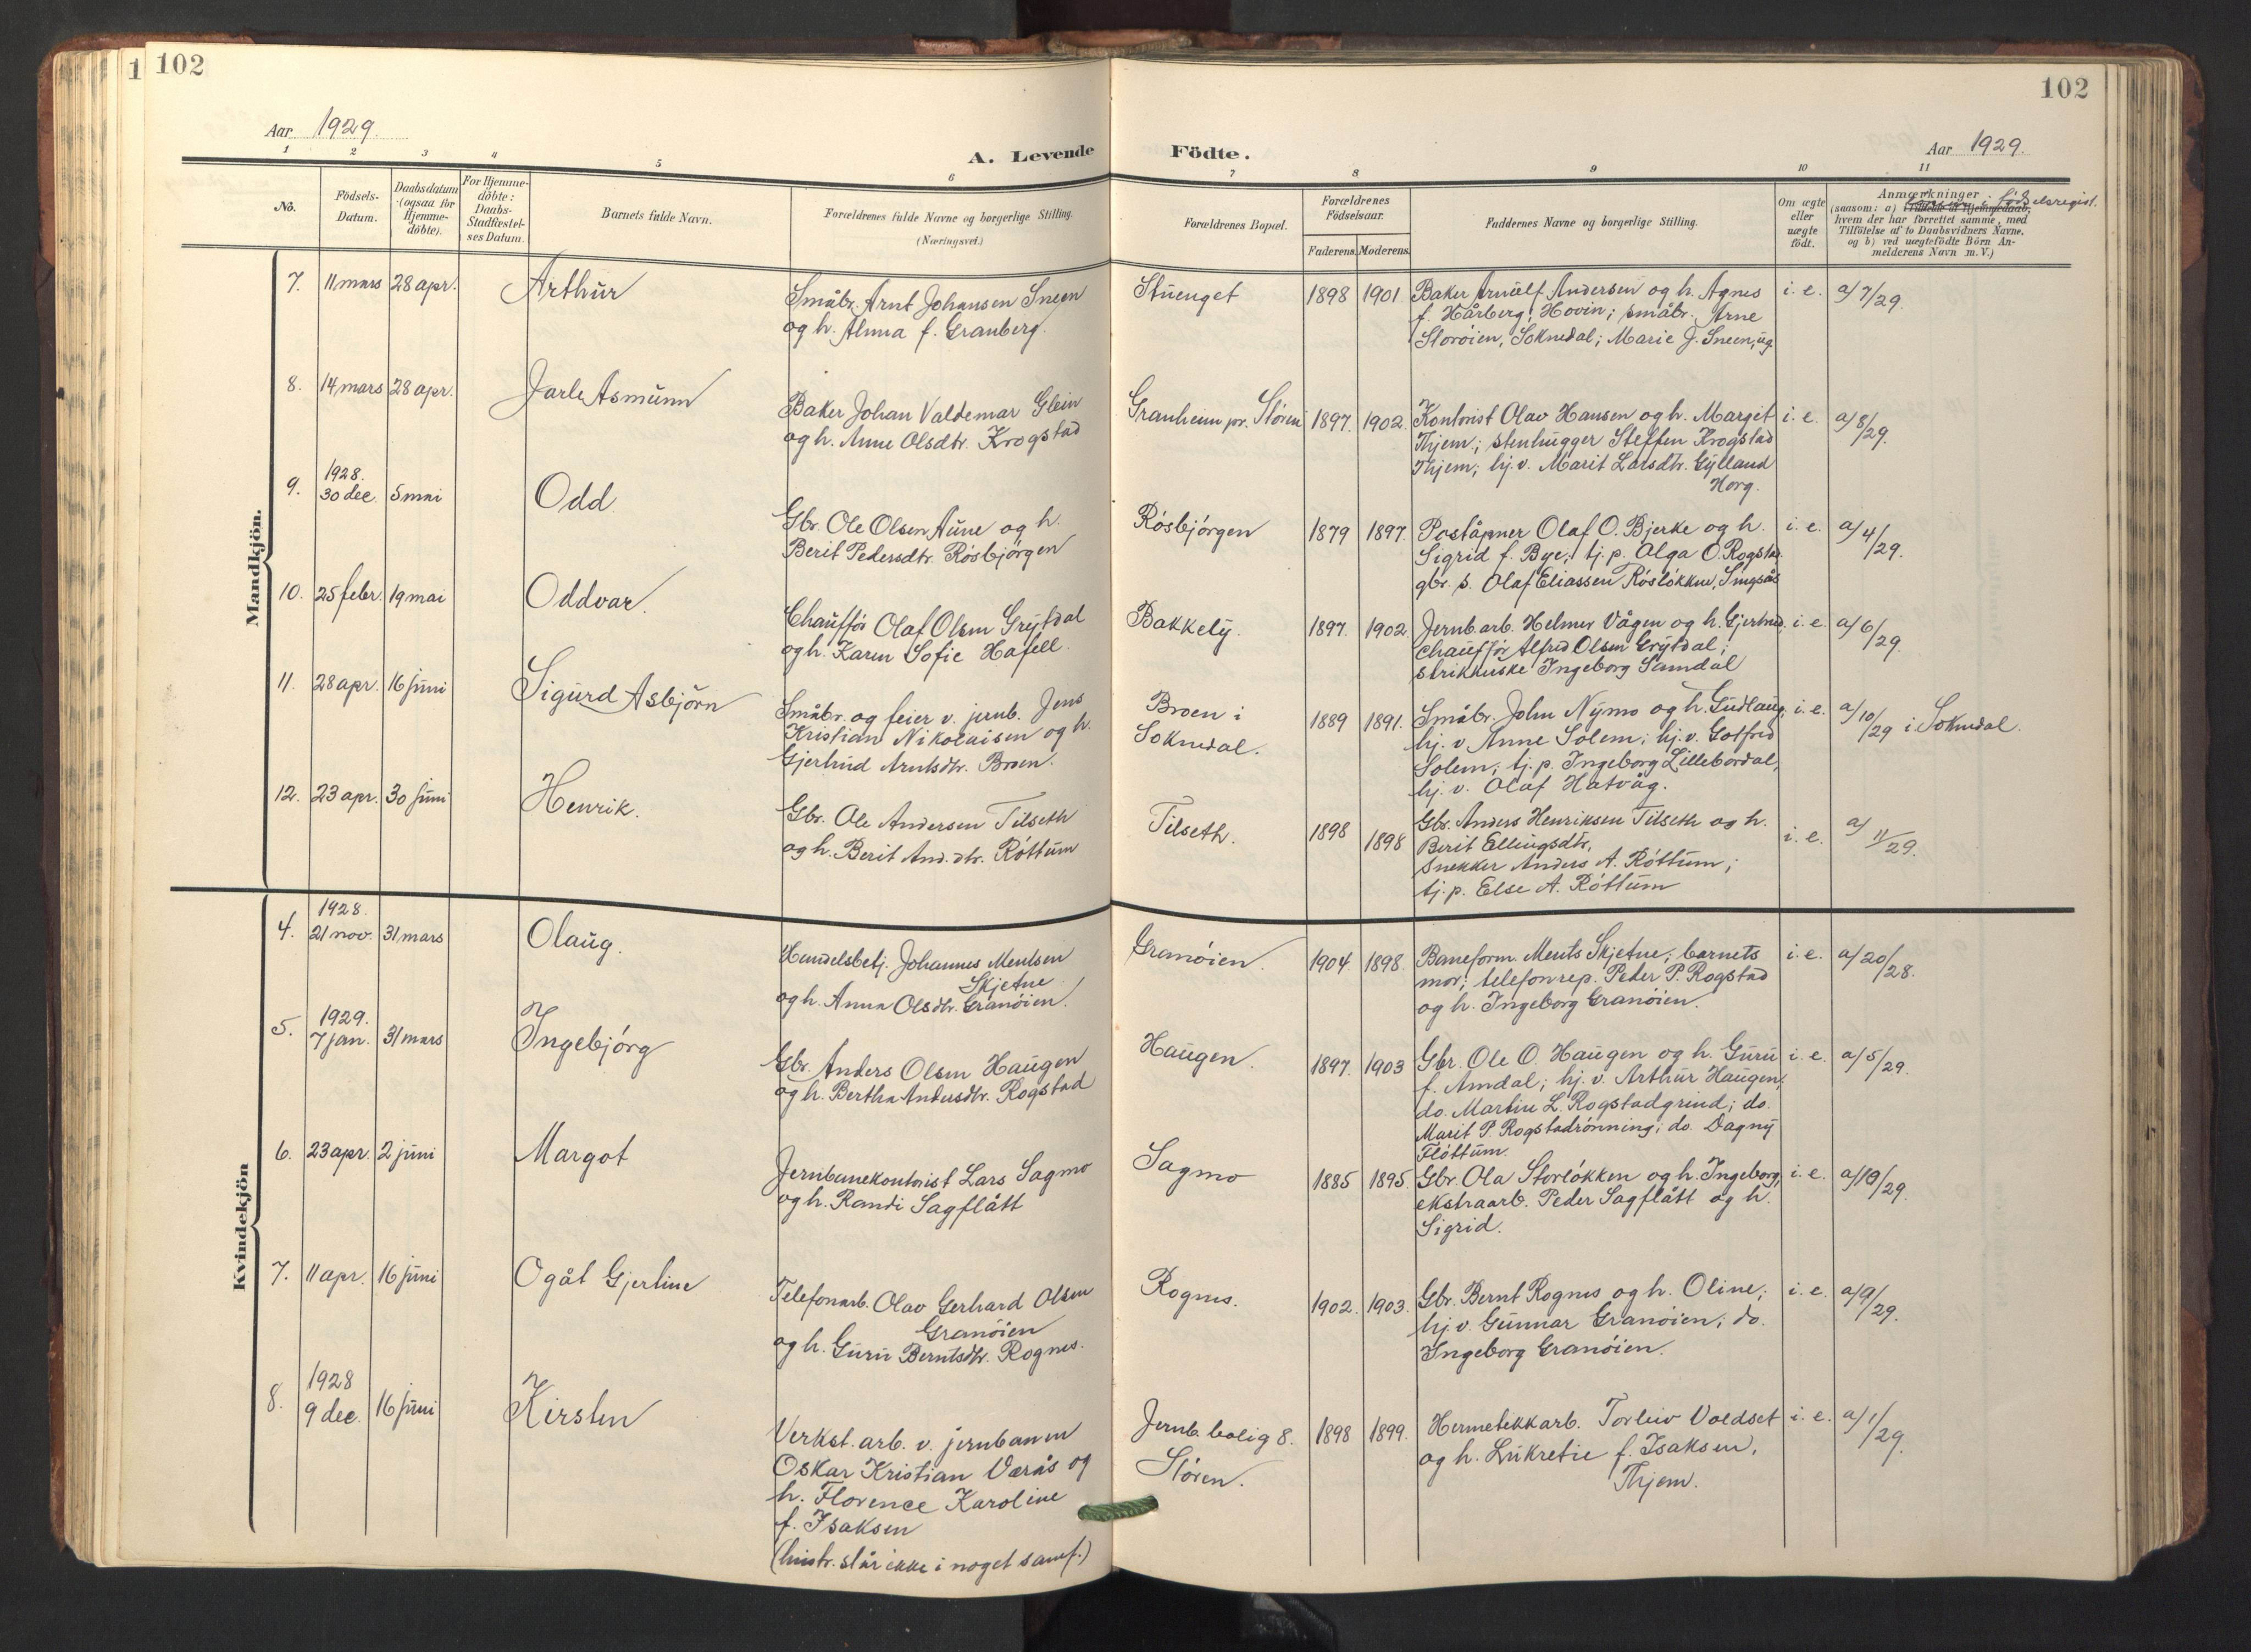 1 102
102
Aar 1929.
A. Levende Födte.
Aar 1929.
1 2 3 4 5 6 7 8 9 10 11
No.
Födsels-
Datum.
Daabsdatum
(ogsaa for
Hjemme-
döbte).
For Hjemme-
döbte:
Daabs-
Stadfæstel-
ses Datum.
Barnets fulde Navn.
Forældrenes fulde Navne og borgerlige Stilling.
(Næringsvei.)
Forældrenes Bopæl.
Forældrenes
Födselsaar.
Faderens. Moderens.
Faddernes Navne og borgerlige Stilling.
Om ægte
eller
uægte
födt.
Anmærkninger
fødselsregist.
(saasom: a) i Tilfælde af Hjemmedaab,
hvem der har forrettet samme, med
Tilföielse af to Daabsvidners Navne,
og b) ved uægtefödte Börn An-
melderens Navn m. V.)
Mandkjön.
7. 11 mars 28 apr. Arthur
Småbr. Arnt Johansen Sneen
og h. Alma f. Granberg.
Stuenget 1898 1901.
Baker Arnulf Andersen og h. Agnes
f. Hårberg, Hovin; småbr. Arne
Storöien, Soknedal; Marie J. Sneen, ug.
i. e. a/7/29.
8. 14 mars 28 apr. Jarle Asmunn
Baker Johan Valdemar Glein
og h. Anne Olsdtr. Krogstad
Granheim pr. Stören 1897. 1902.
Kontorist Olav Hansen og h. Margit
Thjem; stenhugger Steffen Krogstad
Thjem; hj. v. Marit Larsdtr. Gylland
Horg.
i. e. a/8/29.
9. 1928.
30 dec. 5 mai Odd
Gbr. Ole Olsen Aune og h.
Berit Pedersdtr. Rösbjörgen
Rösbjörgen 1879 1897.
Poståpner Olaf O. Bjerke og h.
Sigrid f. Bye; tj. p. Olga O. Rogstad
gbr. s. Olaf Eliassen Röslökken, Singsås
i. e. a/4/29.
10. 25 febr. 19 mai Oddvar.
Chaufför Olaf Olsen Grytdal
og h. Karen Sofie Hafell.
Bakkely. 1897. 1902.
Jernb. arb. Helmer Vågen og h. Gjertrud,
chaufför Alfred Olsen Grytdal;
strikkerske Ingeborg Samdal
i. e. a/6/29.
11. 28 apr. 16 juni Sigurd Asbjörn
Småbr. og feier v. jernb. Jens
Kristian Nikolaisen og h.
Gjertrud Arntsdtr. Broen.
Broen i
Soknedal. 1889 1891.
Småbr. John Nymo og h. Gudlaug;
hj. v. Anne Solem; hj. v. Gotfred
Solem; tj. p. Ingeborg Lillebordal,
hj. v. Olaf Hatvåg.
i. e. a/10/29 i Soknedal.
12. 23 apr. 30 juni Henrik.
Gbr. Ole Andersen Tilseth
og h. Berit And.dtr. Röttum
Tilseth. 1898 1898
Gbr. Anders Henriksen Tilseth og h.
Berit Ellingsdtr,
snekker Anders A. Röttum;
tj. p. Else A. Röttum
i. e. a/11/29.
Kvindekjön
4. 1928.
21 nov. 31 mars Olaug.
Handelsbetj. Johannes Mentsen
Skjetne
og h. Anna Olsdtr. Granöien.
Granöien. 1904. 1898.
Baneform. Ments Skjetne; barnets
mor; telefonrep. Peder P. Rogstad
og h. Ingeborg Granöien.
i. e. a/20/28.
5. 1929.
7 jan. 31 mars Ingebjörg
Gbr. Anders Olsen Haugen
og h. Bertha Andersdtr. Rogstad
Haugen. 1897. 1903
Gbr. Ole O. Haugen og h. Guru
f. Amdal; hj. v. Arthur Haugen,
do. Martin L. Rogstadgrind; do.
Marit P. Rogstadrönning; do. Dagny
Flöttum.
i. e. a/5/29.
6. 23 apr. 2 juni Margot
Jernbanekontorist Lars Sagmo
og h. Randi Sagflått
Sagmo 1885 1895.
Gbr. Ola Storlökken og h. Ingeborg,
ekstraarb. Peder Sagflått og h.
Sigrid.
i. e. a/10/29.
7. 11 apr. 16 juni Ogåt Gjertine
Telefonarb. Olav Gerhard Olsen
Granöien
og h. Guru Berntsdtr. Rognes.
Rognes. 1902. 1903.
Gbr. Bernt Rognes og h. Oline;
hj. v. Gunnar Granöien; do.
Ingeborg Granöien.
i. e. a/9/29.
8. 1928
9 dec. 16 juni Kirsten
Verkst. arb. v. jernbanen
Oskar Kristian Værås og
h. Florence Karoline
f. Isaksen
(hustr. står ikke i noget samf.)
Jernb. bolig 8.
Stören. 1898 1899.
Hermetikkarb. Torleiv Voldset
og h. Lukretie f. Isaksen,
Thjem.
i. e. a/1/29.